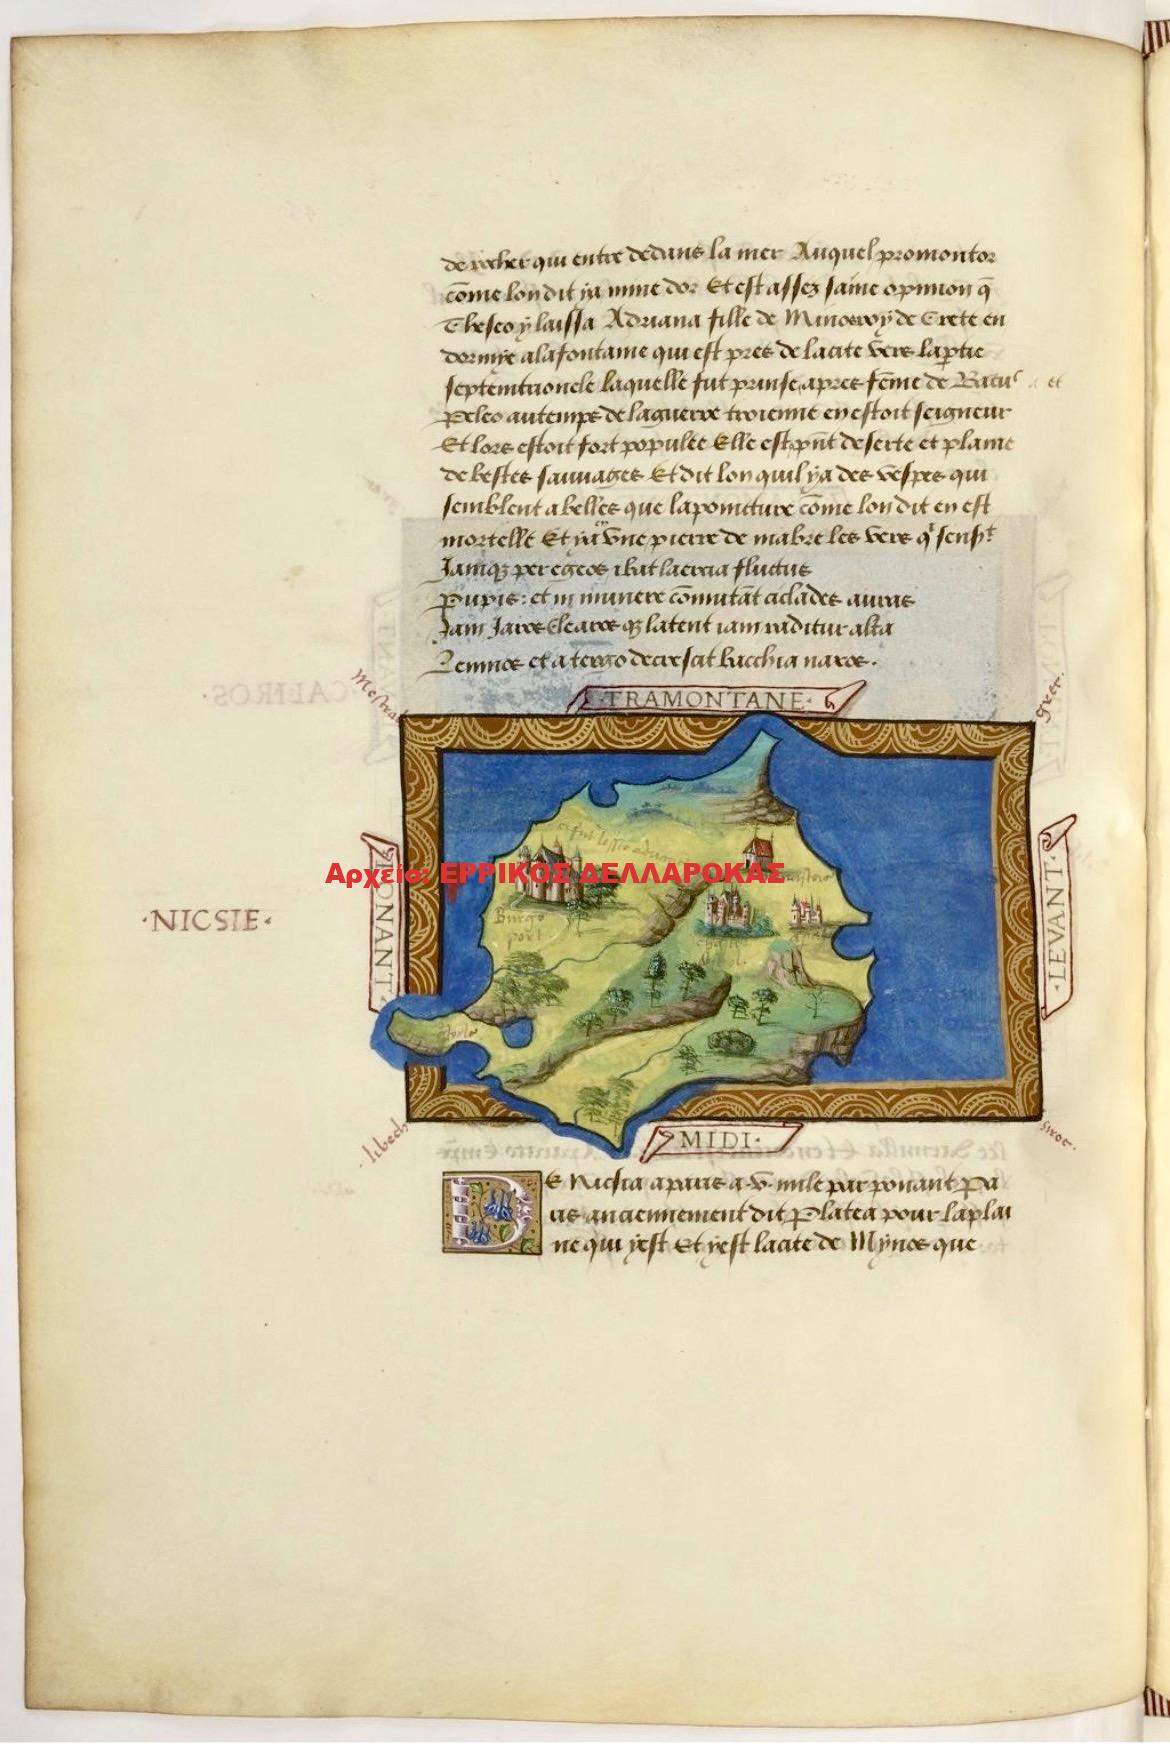 de rocher qui entre dedans la mer Auquel promontor
cōme lon dit ya mine dor Et est assez saine opinion q̄
Theseo y laissa Adriana fille de Minos roy de Crete en
dormye a la fontaine qui est pres de la cite vers la ptie
septemtrionele laquelle fut prinse apres fēme de Bacus et
Peleo au temps de la guerre troienne en estoit seigneur
Et lors estoit fort populee Elle est pnt deserte et plaine
de bestes sauuages Et dit lon quil ya des vespes qui
semblent abelles que la poincture cōme lon dit en est
mortelle Et ya en vne pierre de mabre les vers
Jamq; per egeos ibat laercia fluctus
Pupis: et in munere cōmutāt ciclades auras
Jam Jaros Clearos q; latent iam raditur alta
Lemnos et a tergo decrescit bacchia naxos.
Mestral
·TRAMONTANE·
grec.
Αρχείο: ΕΡΡΙΚΟΣ ΔΕΛΛΑΡΟΚΑΣ
Burgo
port
·NICSIE·
PONANT·
·LEVANT·
libech
MIDI·
siroc·
DE Nicsia a paris a ·v· mile par ponant Pa
ris anciennement dit Platea pour la plai
ne qui yest Et yest la cite de Mynos que